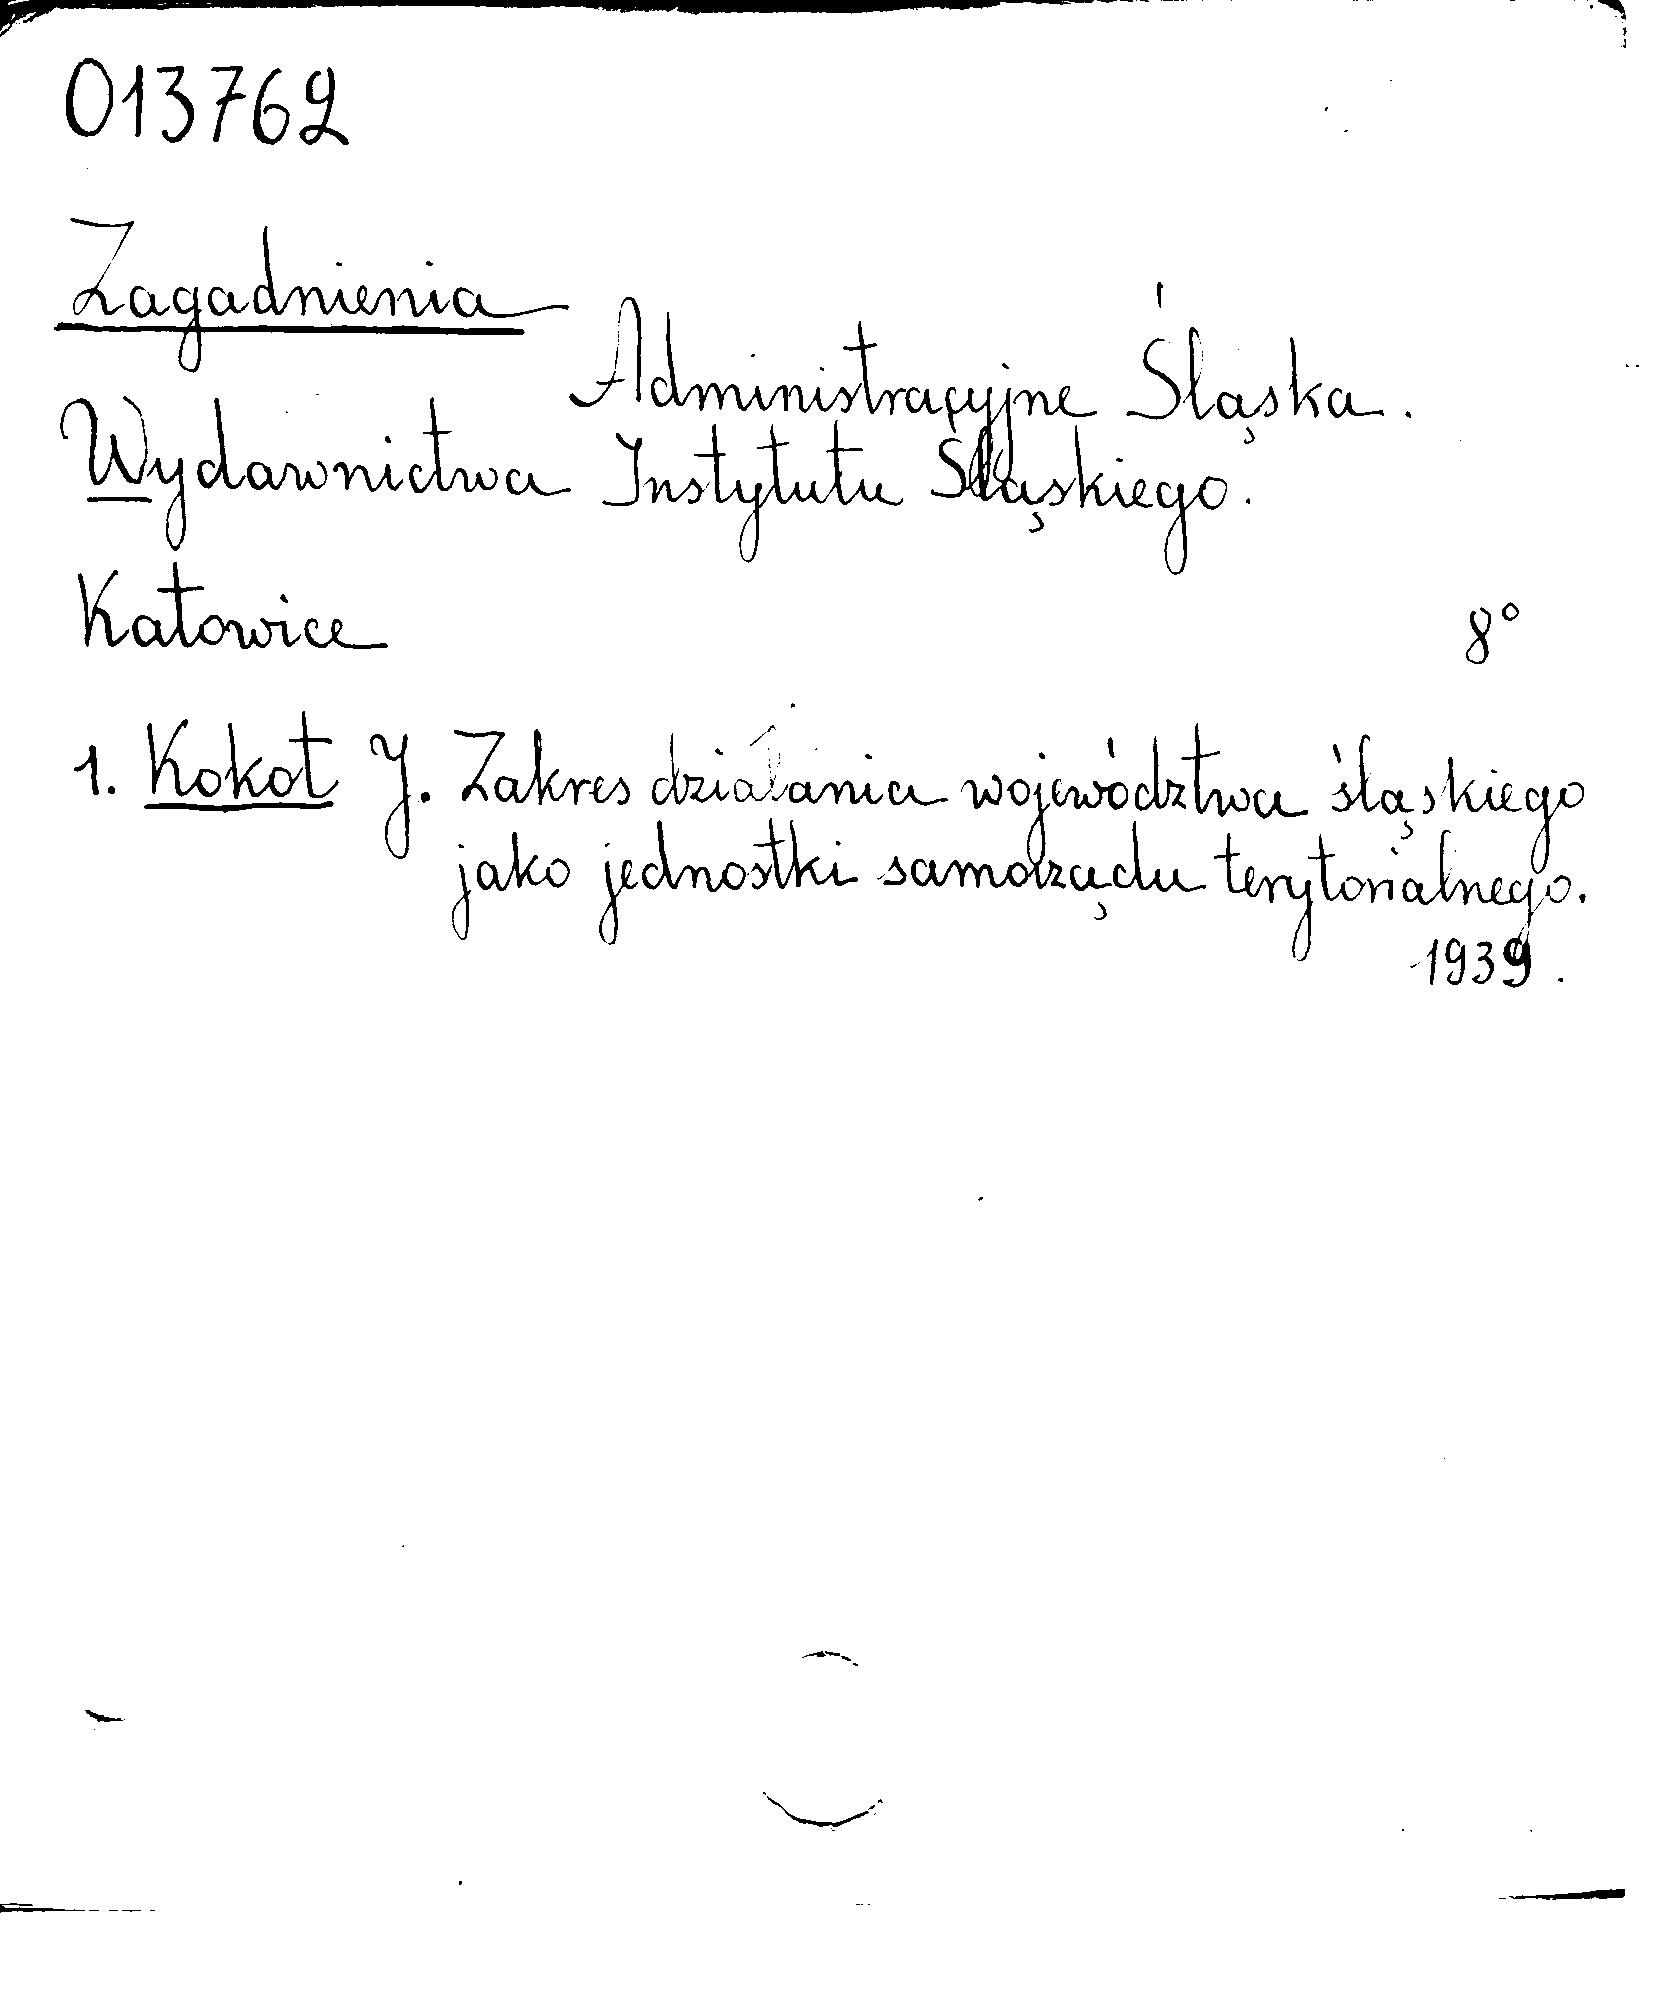 013762
Zagadnienia
Administracyjne Śląska.
Wydawnictwa Instytutu Śląskiego.
Katowice 8°
1. Kokot J. Zakres działania województwa śląskiego
jako jednostki samorządu terytorialnego.
1939.